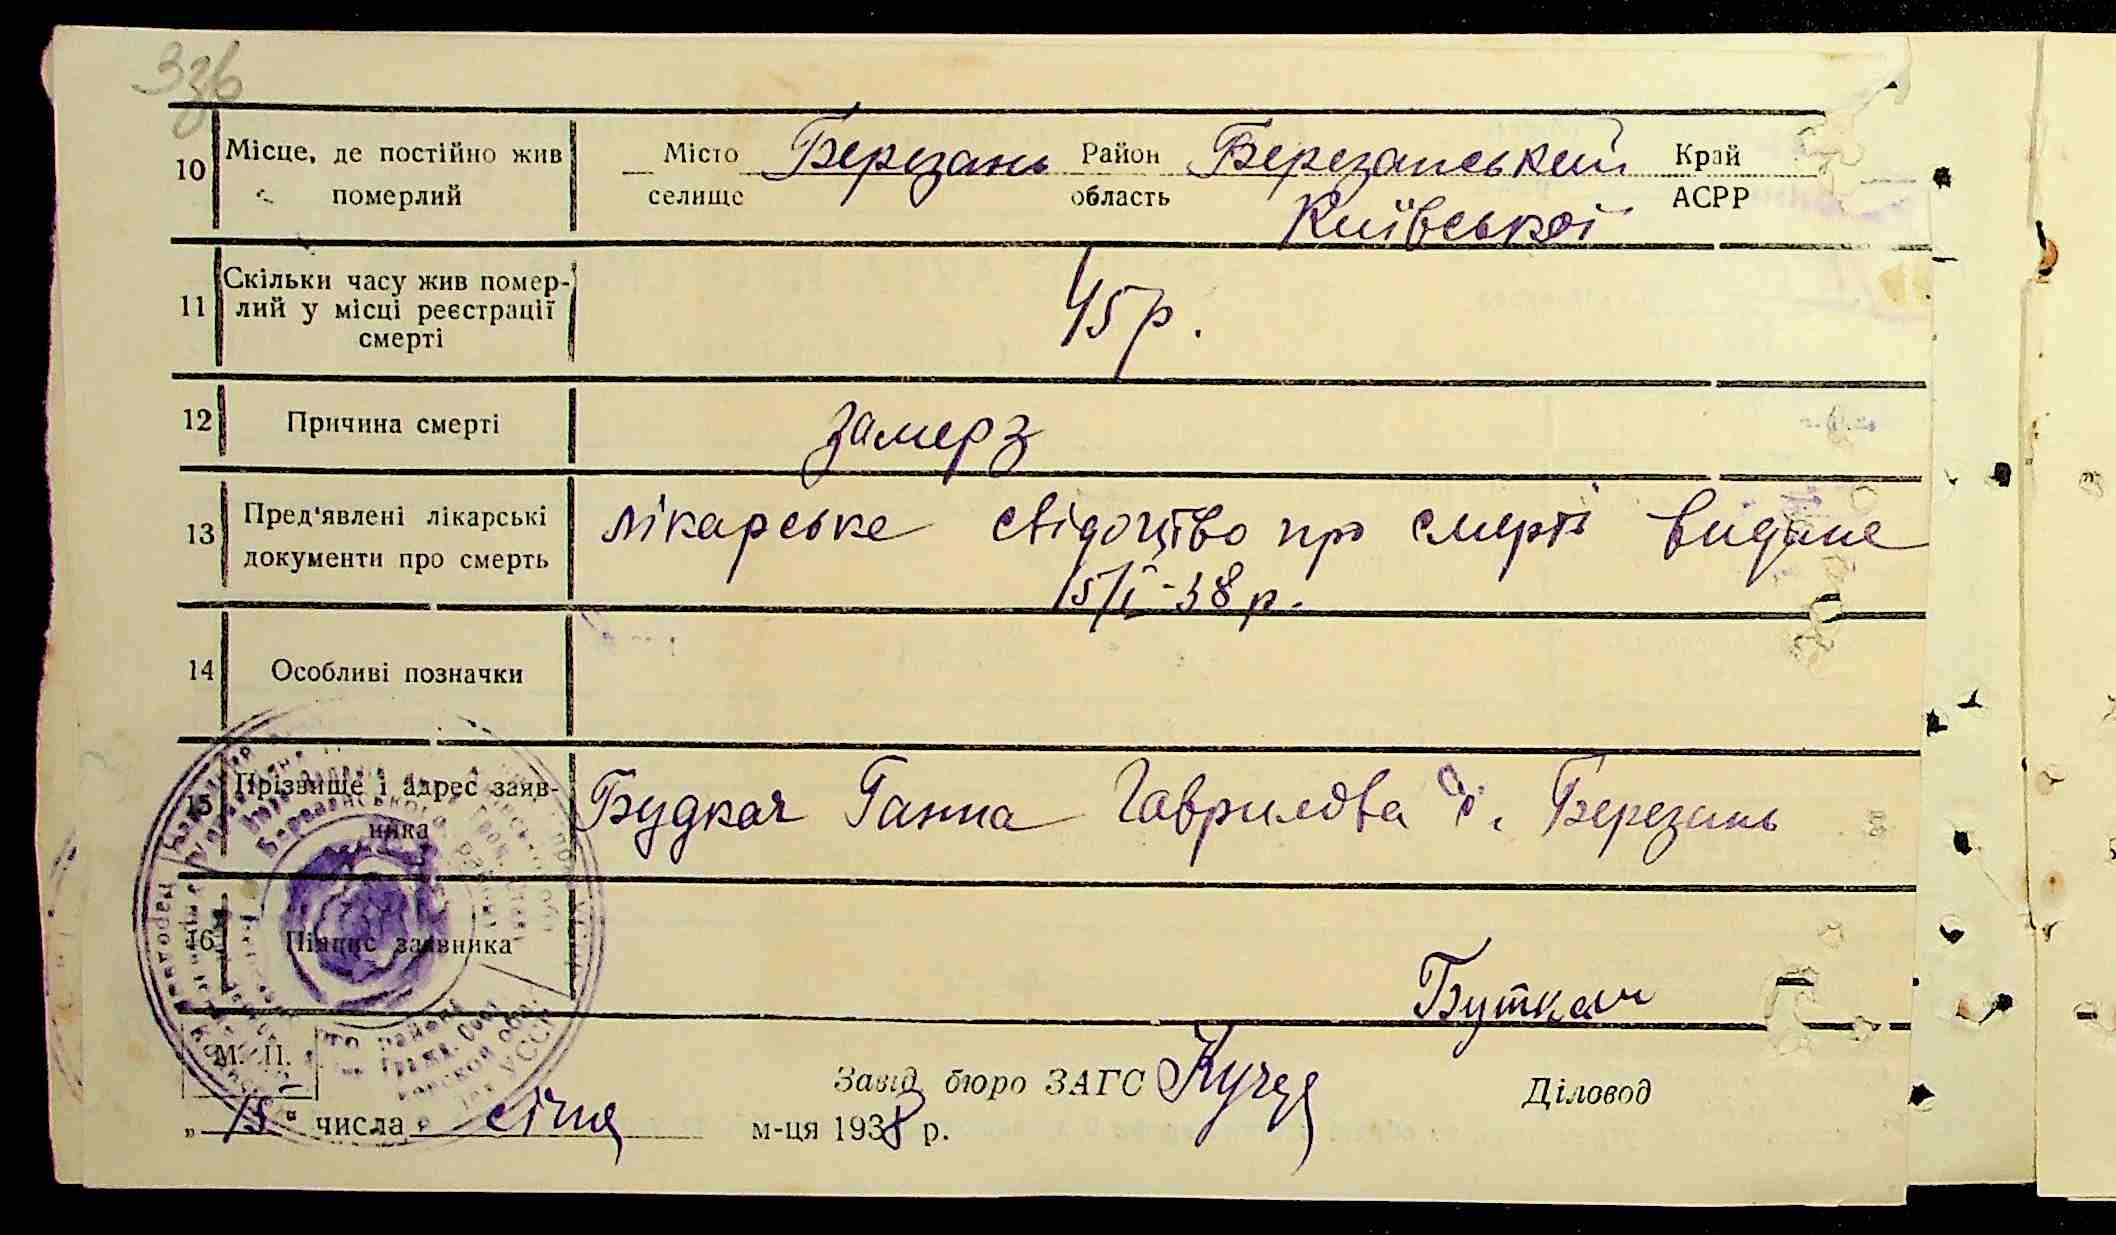 10 Місце, де постійно жив померлий Місто селище Березань Район область Березанський Київської Край АСРР
11 Скільки часу жив померлий у місці реєстрації смерті 45 р.
12 Причина смерті замерз
13 Пред'явлені лікарські документи про смерть лікарське свідоцтво про смерть видане
15/I-38 р.
14 Особливі позначки
15 Прізвище і адрес заявника Будкач Ганна Гаврилова с. Березань
16 Підпис заявника Буткач
М. П.
Завід. бюро ЗАГС Діловод
„15" числа січня м-ця 1938 р.